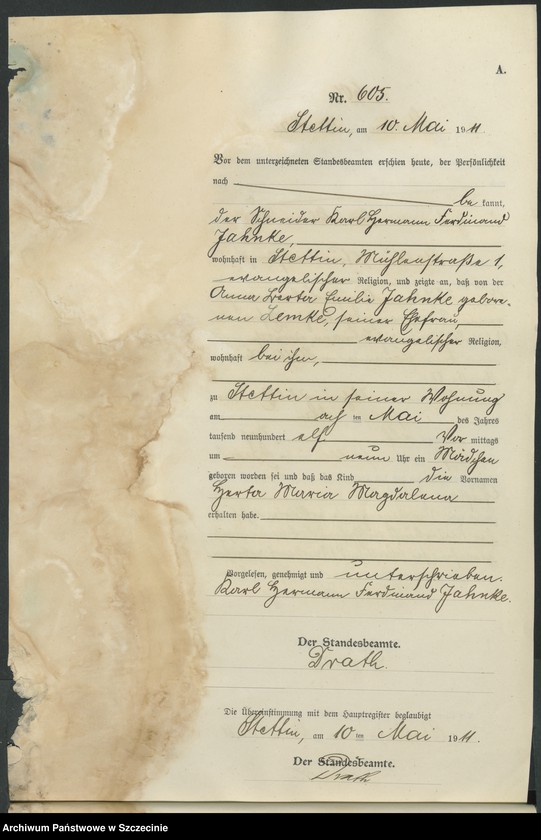 A.
Nr. 605.
Stettin, am 10. Mai 1911.
Vor dem unterzeichneten Standesbeamten erschien heute, der Persönlichkeit
nach
be kannt,
der Schneider Karl Hermann Ferdinand
Jahnke,
wohnhaft in Stettin, Mühlenstraße 1,
evangelischer Religion, und zeigte an, daß von der
Anna Berta Emilie Jahnke gebore-
nen Lemke, seiner Ehefrau,
evangelischer Religion,
wohnhaft bei ihm,
zu Stettin in seiner Wohnung
am acht ten Mai des Jahres
tausend neunhundert elf Vor mittags
um neun Uhr ein Mädchen
geboren worden sei und daß das Kind die Vornamen
Herta Maria Magdalena
erhalten habe.
Vorgelesen, genehmigt und unterschrieben.
Karl Hermann Ferdinand Jahnke.
Der Standesbeamte.
Drath.
Die Übereinstimmung mit dem Hauptregister beglaubigt
Stettin, am 10 ten Mai 1911.
Der Standesbeamte.
Drath
Archiwum Państwowe w Szczecinie